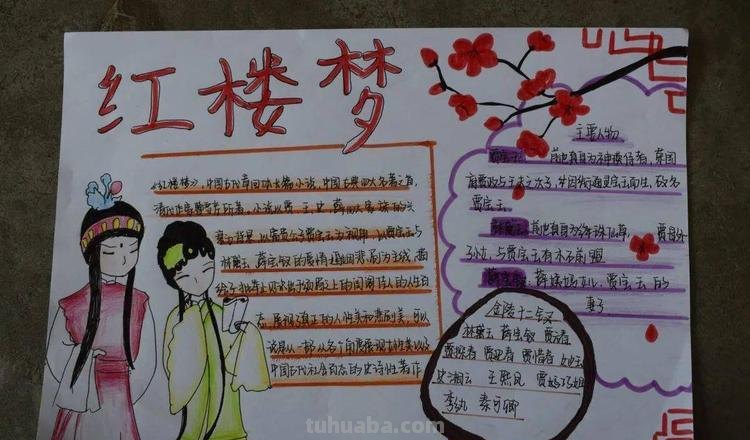 红楼梦
《红楼梦》,中国古代章回体长篇小说,中国古典四大名著之首,
清代作家曹雪芹所著。小说以贾、王、史、薛四大家族的兴
衰为背景,以富贵公子贾宝玉为视角,以贾宝玉与
林黛玉、薛宝钗的爱情婚姻悲剧为主线,描
绘了一批举止见识出于须眉之上的闺阁佳人的人生百
态,展现了真正的人性美和悲剧美,可以
说是一部从各个角度展现女性美以及
中国古代社会百态的史诗性著作
主要人物
贾宝玉:前世真身为神瑛侍者,荣国
府贾政与王夫人之次子,因衔通灵宝玉而生,故名
贾宝玉。
林黛玉:前世真身为绛珠仙草,贾母外
孙女,与贾宝玉有木石前盟
薛宝钗:薛姨妈女儿,贾宝玉的
妻子
金陵十二钗
林黛玉 薛宝钗 贾元春
贾探春 贾迎春 贾惜春 妙玉
史湘云 王熙凤 贾巧姐
李纨 秦可卿
tuhuaba.com